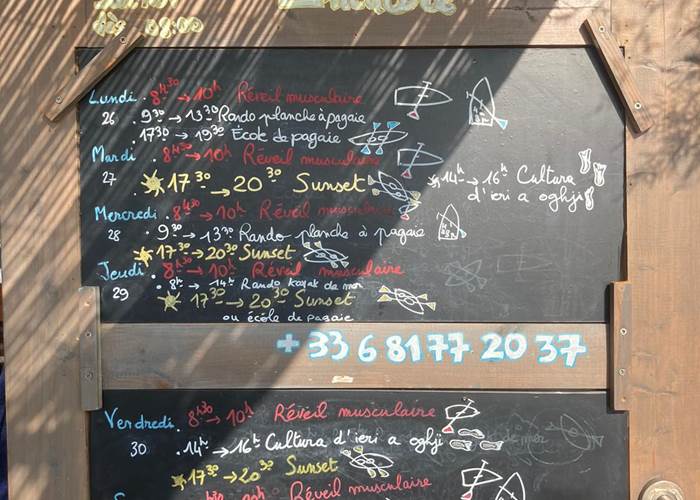 08:00
Lundi . 8h30 → 10h Réveil musculaire
26 . 9³⁰ → 13³⁰ Rando planche à pagaie
17³⁰ → 19³⁰ École de pagaie
Mardi . 8h30 → 10h Réveil musculaire
27 17³⁰ → 20³⁰ Sunset
14h → 16h Cultura
d'ieri a oghji
Mercredi . 8h30 → 10h Réveil musculaire
28 . 9³⁰ → 13³⁰ Rando planche à pagaie
. 17³⁰ → 20³⁰ Sunset
Jeudi . 8h30 → 10h Réveil musculaire
29 . 8h → 14h Rando kayak de mer
17³⁰ → 20³⁰ Sunset
ou école de pagaie
+ 33 6 81 77 20 37
Vendredi . 8h30 → 10h Réveil musculaire
30 . 14h → 16h Cultura d'ieri a oghji
17³⁰ → 20³⁰ Sunset
10h Réveil musculaire